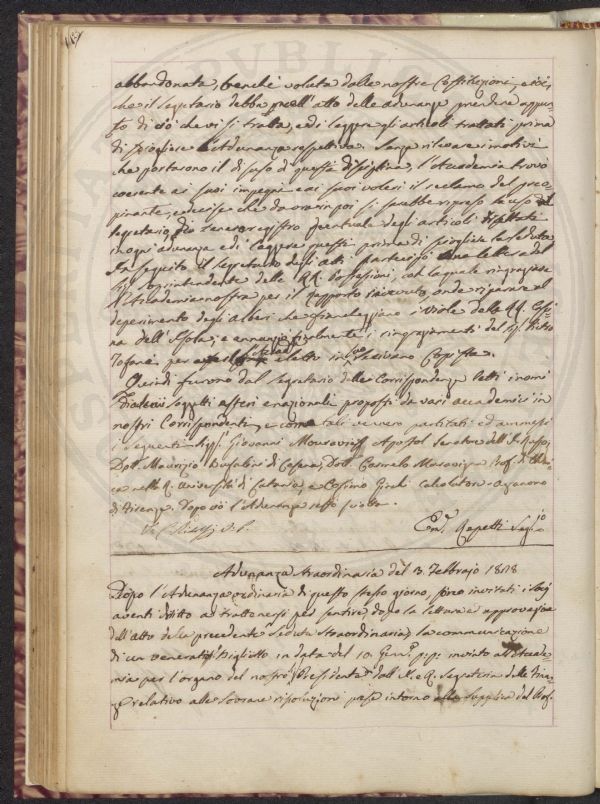 abbandonata, benchè voluta dalle nostre Costituzioni, cioè
che il segretario debba nell'atto delle adunanze prendere appun-
to di ciò che vi si tratta, e di leggere gli articoli trattati prima
di sciogliere l'Adunanza respettiva. Senza rilevare i motivi
che portarono il disuso di questa disciplina, l'Accademia trovò
coerente ai suoi impegni e ai suoi voleri il reclamo del preo-
pinante, e decise che da ora in poi si sarebbe ripreso l'uso dal
segretario di tenere registro puntuale degli articoli
in ogni adunanza e di leggere questi prima di sciogliere la seduta
In seguito il segretario degli atti partecipò una lettera del
Sig. Soprintendente delle RR. Possessioni, con la quale ringraziava
l'Accademia nostra per il rapporto ricevuto, onde riparare al
deperimento degli alberi che fiancheggiano i Viali delle RR. Casci-
ne dell'Isola; e annunziò finalmente i ringraziamenti del Sig. Pietro
Tofani, per eletto in Copista.
Quindi furono dal segretario delle Corrispondenze letti i nomi
di alcuni soggetti esteri e nazionali proposti da vari accademici in
nostri Corrispondenti, e come tali vennero partitati ed ammessi
i seguenti Sigg. Giovanni
Dott. Maurizio Bufalini di Cesena, Dott. Carmelo Maravigna Prof. di Chimi-
ca nella R. Università di Catania, e Cosimo calcolatore
di Firenze. Dopo ciò l'Adunanza restò sciolta.
Em. Repetti Seg.rio
Adunanza straordinaria del 3. Febbrajo 1828
Dopo l'Adunanza ordinaria di questo stesso giorno, furono invitati i Socj
aventi diritto a trattenersi per sentire dopo la lettura e approvazione
dell'atto della precedente seduta straordinaria, la comunicazione
di un venerato Biglietto in data del 10. Genn.o p.p. inviato all'Accade-
mia per l'organo del nostro Presidente dall'I. e R. Segreteria delle Finan-
ze relativo alle Sovrane risoluzioni prese intorno alla supplica del Prof.